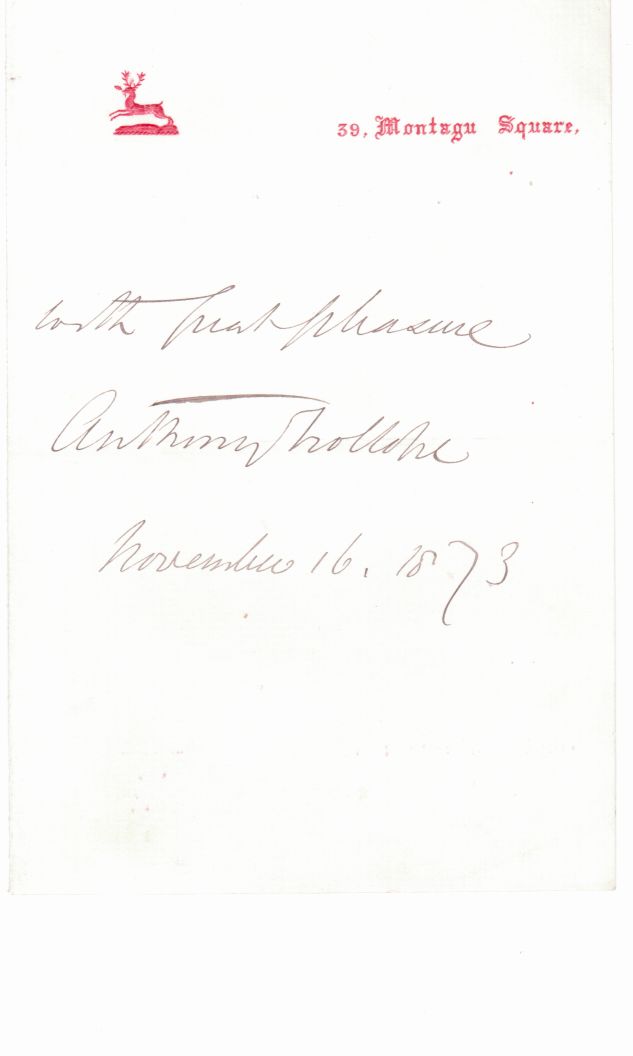 39, Montagu Square,
with great pleasure
Anthony Trollope
November 16. 1873